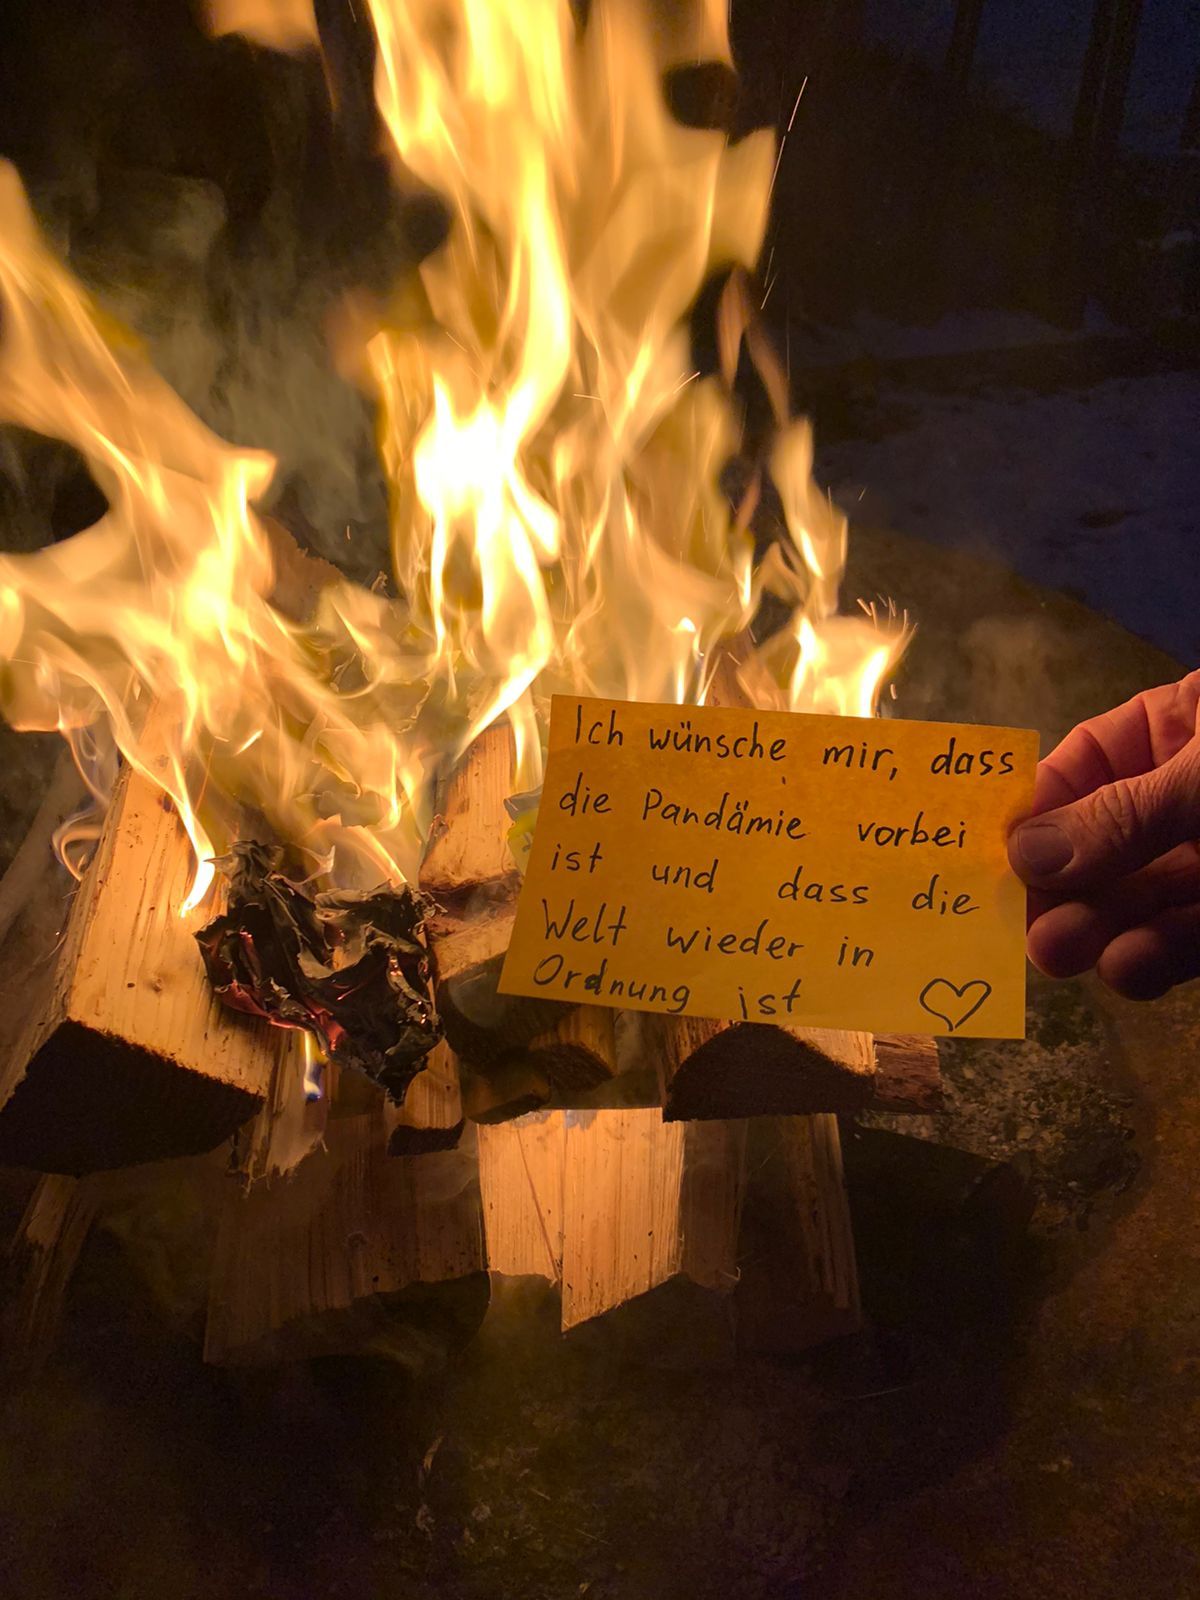 Ich wünsche mir, dass
die Pandämie vorbei
ist und dass die
Welt wieder in
Ordnung ist ♡